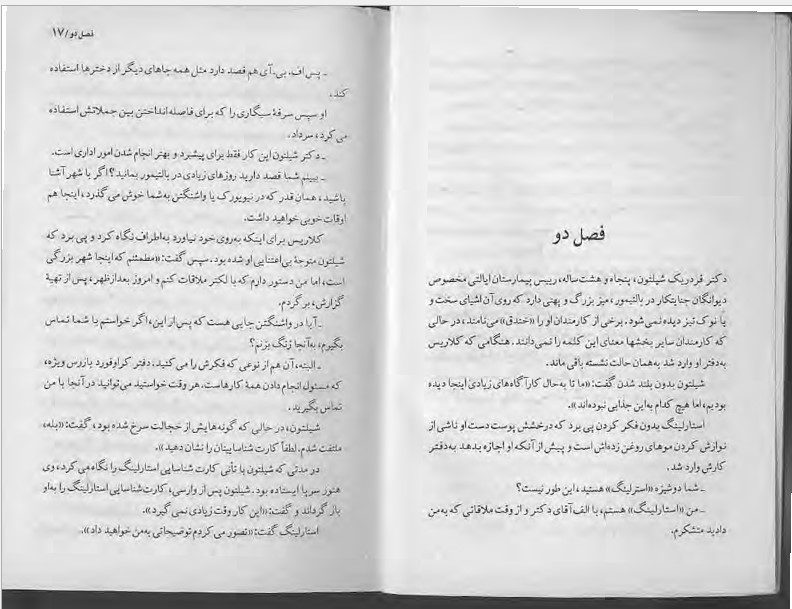 فصل دو
دکتر فردریک شیلتون، پنجاه و هشت‌ساله، رییس بیمارستان ایالتی مخصوص
دیوانگان جنایتکار در بالتیمور، میز بزرگ و پهنی دارد که روی آن اشیای سخت و
یا نوک تیز دیده نمی‌شود. برخی از کارمندان او را «خندق» می‌نامند، در حالی
که کارمندان سایر بخشها معنای این کلمه را نمی‌دانند. هنگامی که کلاریس
به‌دفتر او وارد شد به‌همان حالت نشسته باقی ماند.
شیلتون بدون بلند شدن گفت: «ما تا به‌حال کارآگاه‌های زیادی اینجا دیده
بودیم، اما هیچ کدام به‌این جذابی نبوده‌اند».
استارلینگ بدون فکر کردن پی برد که درخشش پوست دست او ناشی از
نوازش کردن موهای روغن زده‌اش است و پیش از آنکه او اجازه بدهد به‌دفتر
کارش وارد شد.
ـ شما دوشیزه «استرلینگ» هستید، این طور نیست؟
ـ من «استارلینگ» هستم، با الف آقای دکتر و از وقت ملاقاتی که به‌من
دادید متشکرم.
فصل دو/۱۷
ـ پس اف. بی. آی هم قصد دارد مثل همه جاهای دیگر از دخترها استفاده
کند.
او سپس سرفهٔ سیگاری را که برای فاصله انداختن بین جملاتش استفاده
می‌کرد، سرداد.
ـ دکتر شیلتون این کار فقط برای پیشبرد و بهتر انجام شدن امور اداری است.
ـ ببینم شما قصد دارید روزهای زیادی در بالتیمور بمانید؟ اگر با شهر آشنا
باشید، همان قدر که در نیویورک یا واشنگتن به‌شما خوش می‌گذرد، اینجا هم
اوقات خوبی خواهید داشت.
کلاریس برای اینکه به‌روی خود نیاورد به‌اطراف نگاه کرد و پی برد که
شیلتون متوجهٔ بی‌اعتنایی او شده بود. سپس گفت: «مطمئنم که اینجا شهر بزرگی
است، اما من دستور دارم که با لکتر ملاقات کنم و امروز بعدازظهر، پس از تهیهٔ
گزارش، برگردم.
ـ آیا در واشنگتن جایی هست که پس از این، اگر خواستم با شما تماس
بگیرم، به‌آنجا زنگ بزنم؟
ـ البته، آن هم از نوعی که فکرش را می‌کنید. دفتر کراوفورد بازرس ویژه،
که مسئول انجام دادن همهٔ کارهاست. هر وقت خواستید می‌توانید در آنجا با من
تماس بگیرید.
شیلتون، در حالی که گونه‌هایش از خجالت سرخ شده بود، گفت: «بله،
ملتفت شدم. لطفاً کارت شناساییتان را نشان دهید».
در مدتی که شیلتون با تأنی کارت شناسایی استارلینگ را نگاه می‌کرد، وی
هنوز سرپا ایستاده بود. شیلتون پس از وارسی، کارت شناسایی استارلینگ را به‌او
باز گرداند و گفت: «این کار وقت زیادی نمی‌گیرد».
استارلینگ گفت: «تصور می‌کردم توضیحاتی به‌من خواهید داد».